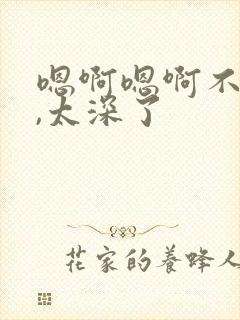 嗯啊嗯啊不
,太深了
花家的養蜂人